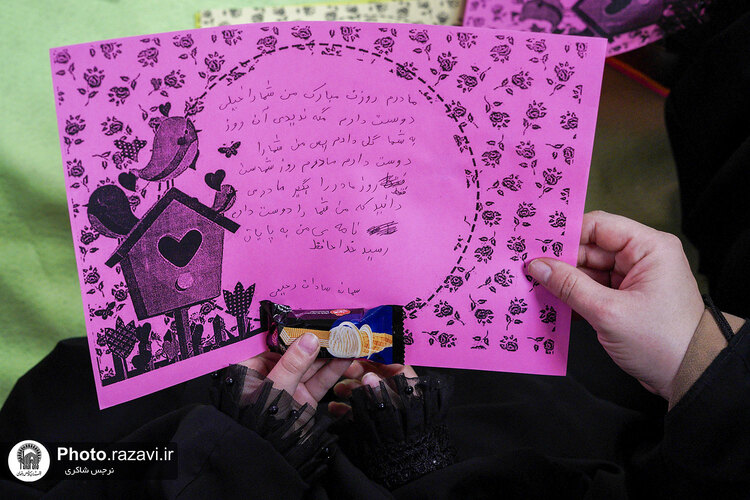 مادرم روزت مبارک من شما را خیلی
دوست دارم مگه ندیدی آن روز
به شما گل دادم پس من شما را
دوست دارم مادرم روز شماست
روز مادر را بگیر مادر می
دانید که من شما را دوست دارم
نامه ی من به پایان
رسید خداحافظ
سمانه سادات رحیمی
Photo.razavi.ir
نرجس شاکری